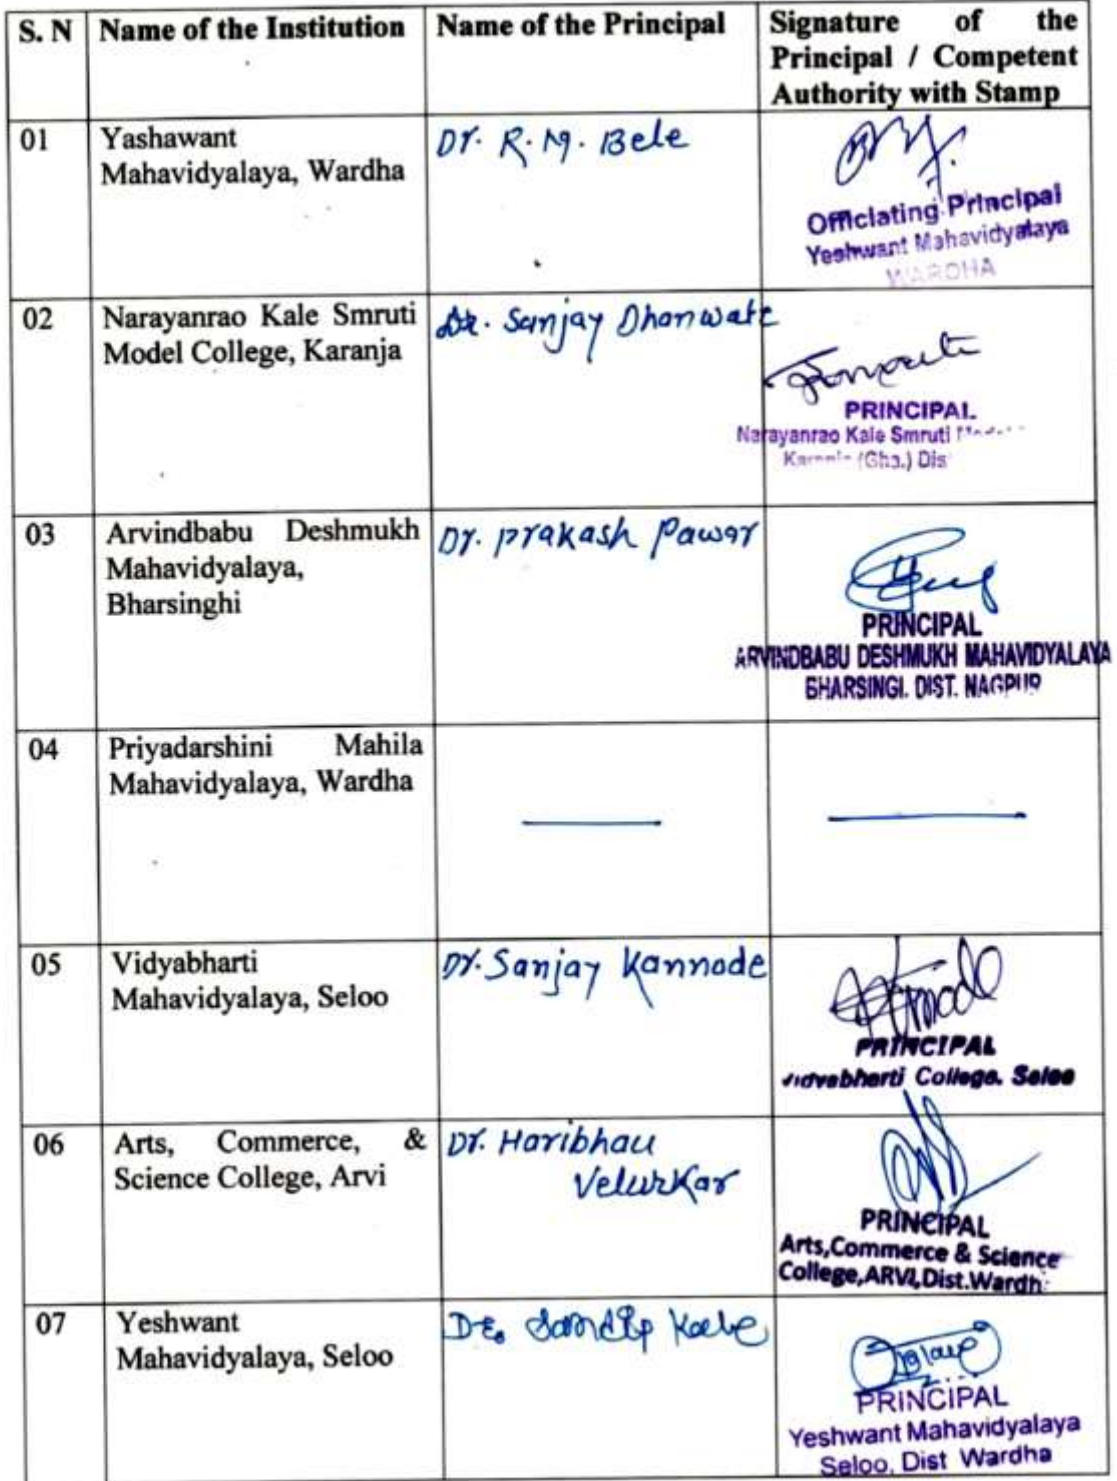 S. N
Name of the Institution
Name of the Principal
Signature of the
Principal / Competent
Authority with Stamp
01
Yashawant
Mahavidyalaya, Wardha
Dr. R. M. Bele
Officiating Principal
Yeshwant Mahavidyalaya
WARDHA
02
Narayanrao Kale Smruti
Model College, Karanja
Dr. Sanjay Dhanwate
PRINCIPAL
Narayanrao Kale Smruti
(Gha.) Dis
03
Arvindbabu Deshmukh
Mahavidyalaya,
Bharsinghi
Dr. Prakash Pawar
PRINCIPAL
ARVINDBABU DESHMUKH MAHAVIDYALAYA
BHARSINGI. DIST. NAGPUR
04
Priyadarshini Mahila
Mahavidyalaya, Wardha
05
Vidyabharti
Mahavidyalaya, Seloo
Dr. Sanjay Kannode
PRINCIPAL
Vidyabharti College. Seloo
06
Arts, Commerce, &
Science College, Arvi
Dr. Haribhau
Velurkar
PRINCIPAL
Arts,Commerce & Science
College,ARVI,Dist.Wardh
07
Yeshwant
Mahavidyalaya, Seloo
Dr. Sandip Kale
PRINCIPAL
Yeshwant Mahavidyalaya
Seloo, Dist Wardha